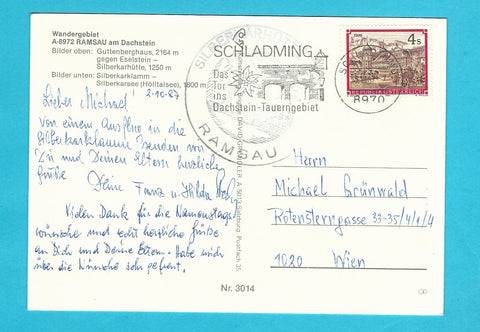 Wandergebiet
A-8972 RAMSAU am Dachstein
Bilder oben: Guttenberghaus, 2164 m
gegen Eselstein –
Silberkarhütte, 1250 m
Bilder unten: Silberkarklamm –
Silberkarsee (Hölltalsee), 1800 m
2.10.87
Lieber Michael!
Von einem Ausflug in die
Silberkarklamm senden wir
Dir und Deinen Eltern herzliche
Grüße
Deine Franz u. Hilda
Vielen Dank für die Namenstags
wünsche und recht herzliche Grüße
an Dich und Deine Eltern. Habe mich
über die Wünsche sehr gefreut.
SILBERKARHÜTTE
RAMSAU
SCHLADMING
Das
Tor
ins
Dachstein-Tauerngebiet
8970
4 S
REPUBLIK ÖSTERREICH
A 5013 Salzburg, Postfach 35
Herrn
Michael Grünwald
Rotensterngasse 33-35/4/1/4
1020 Wien
Nr. 3014